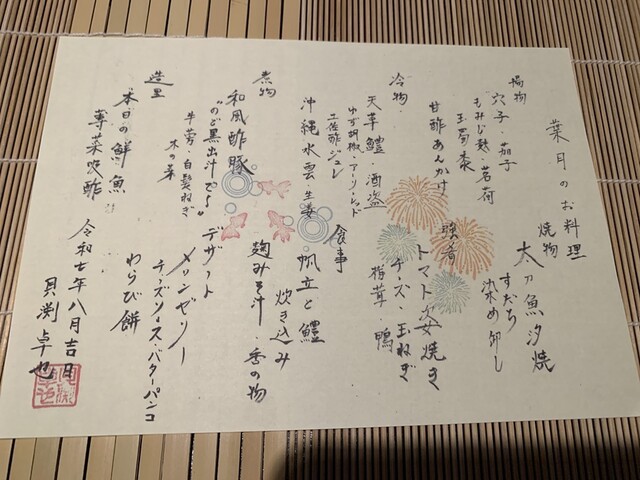 葉月のお料理
揚物
穴子・茄子
もみじ麩・茗荷
玉蜀黍
甘酢あんかけ
冷物
天草鱧・酒盗
ゆず胡椒・アーリーレッド
土佐酢ジュレ
沖縄水雲 生姜
煮物
和風酢豚
"のど黒出汁で〜"
牛蒡・白髪ねぎ
木の芽
造里
本日の鮮魚
蓴菜吸酢
焼物
太刀魚汐焼
すだち
染め卸し
強肴
トマト姿焼き
チーズ・玉ねぎ
椎茸・鴨
食事
帆立と鱧
炊き込み
麹みそ汁・香の物
デザート
メロンゼリー
チーズソース・バターパンコ
わらび餅
令和七年八月吉日
貝渕卓也